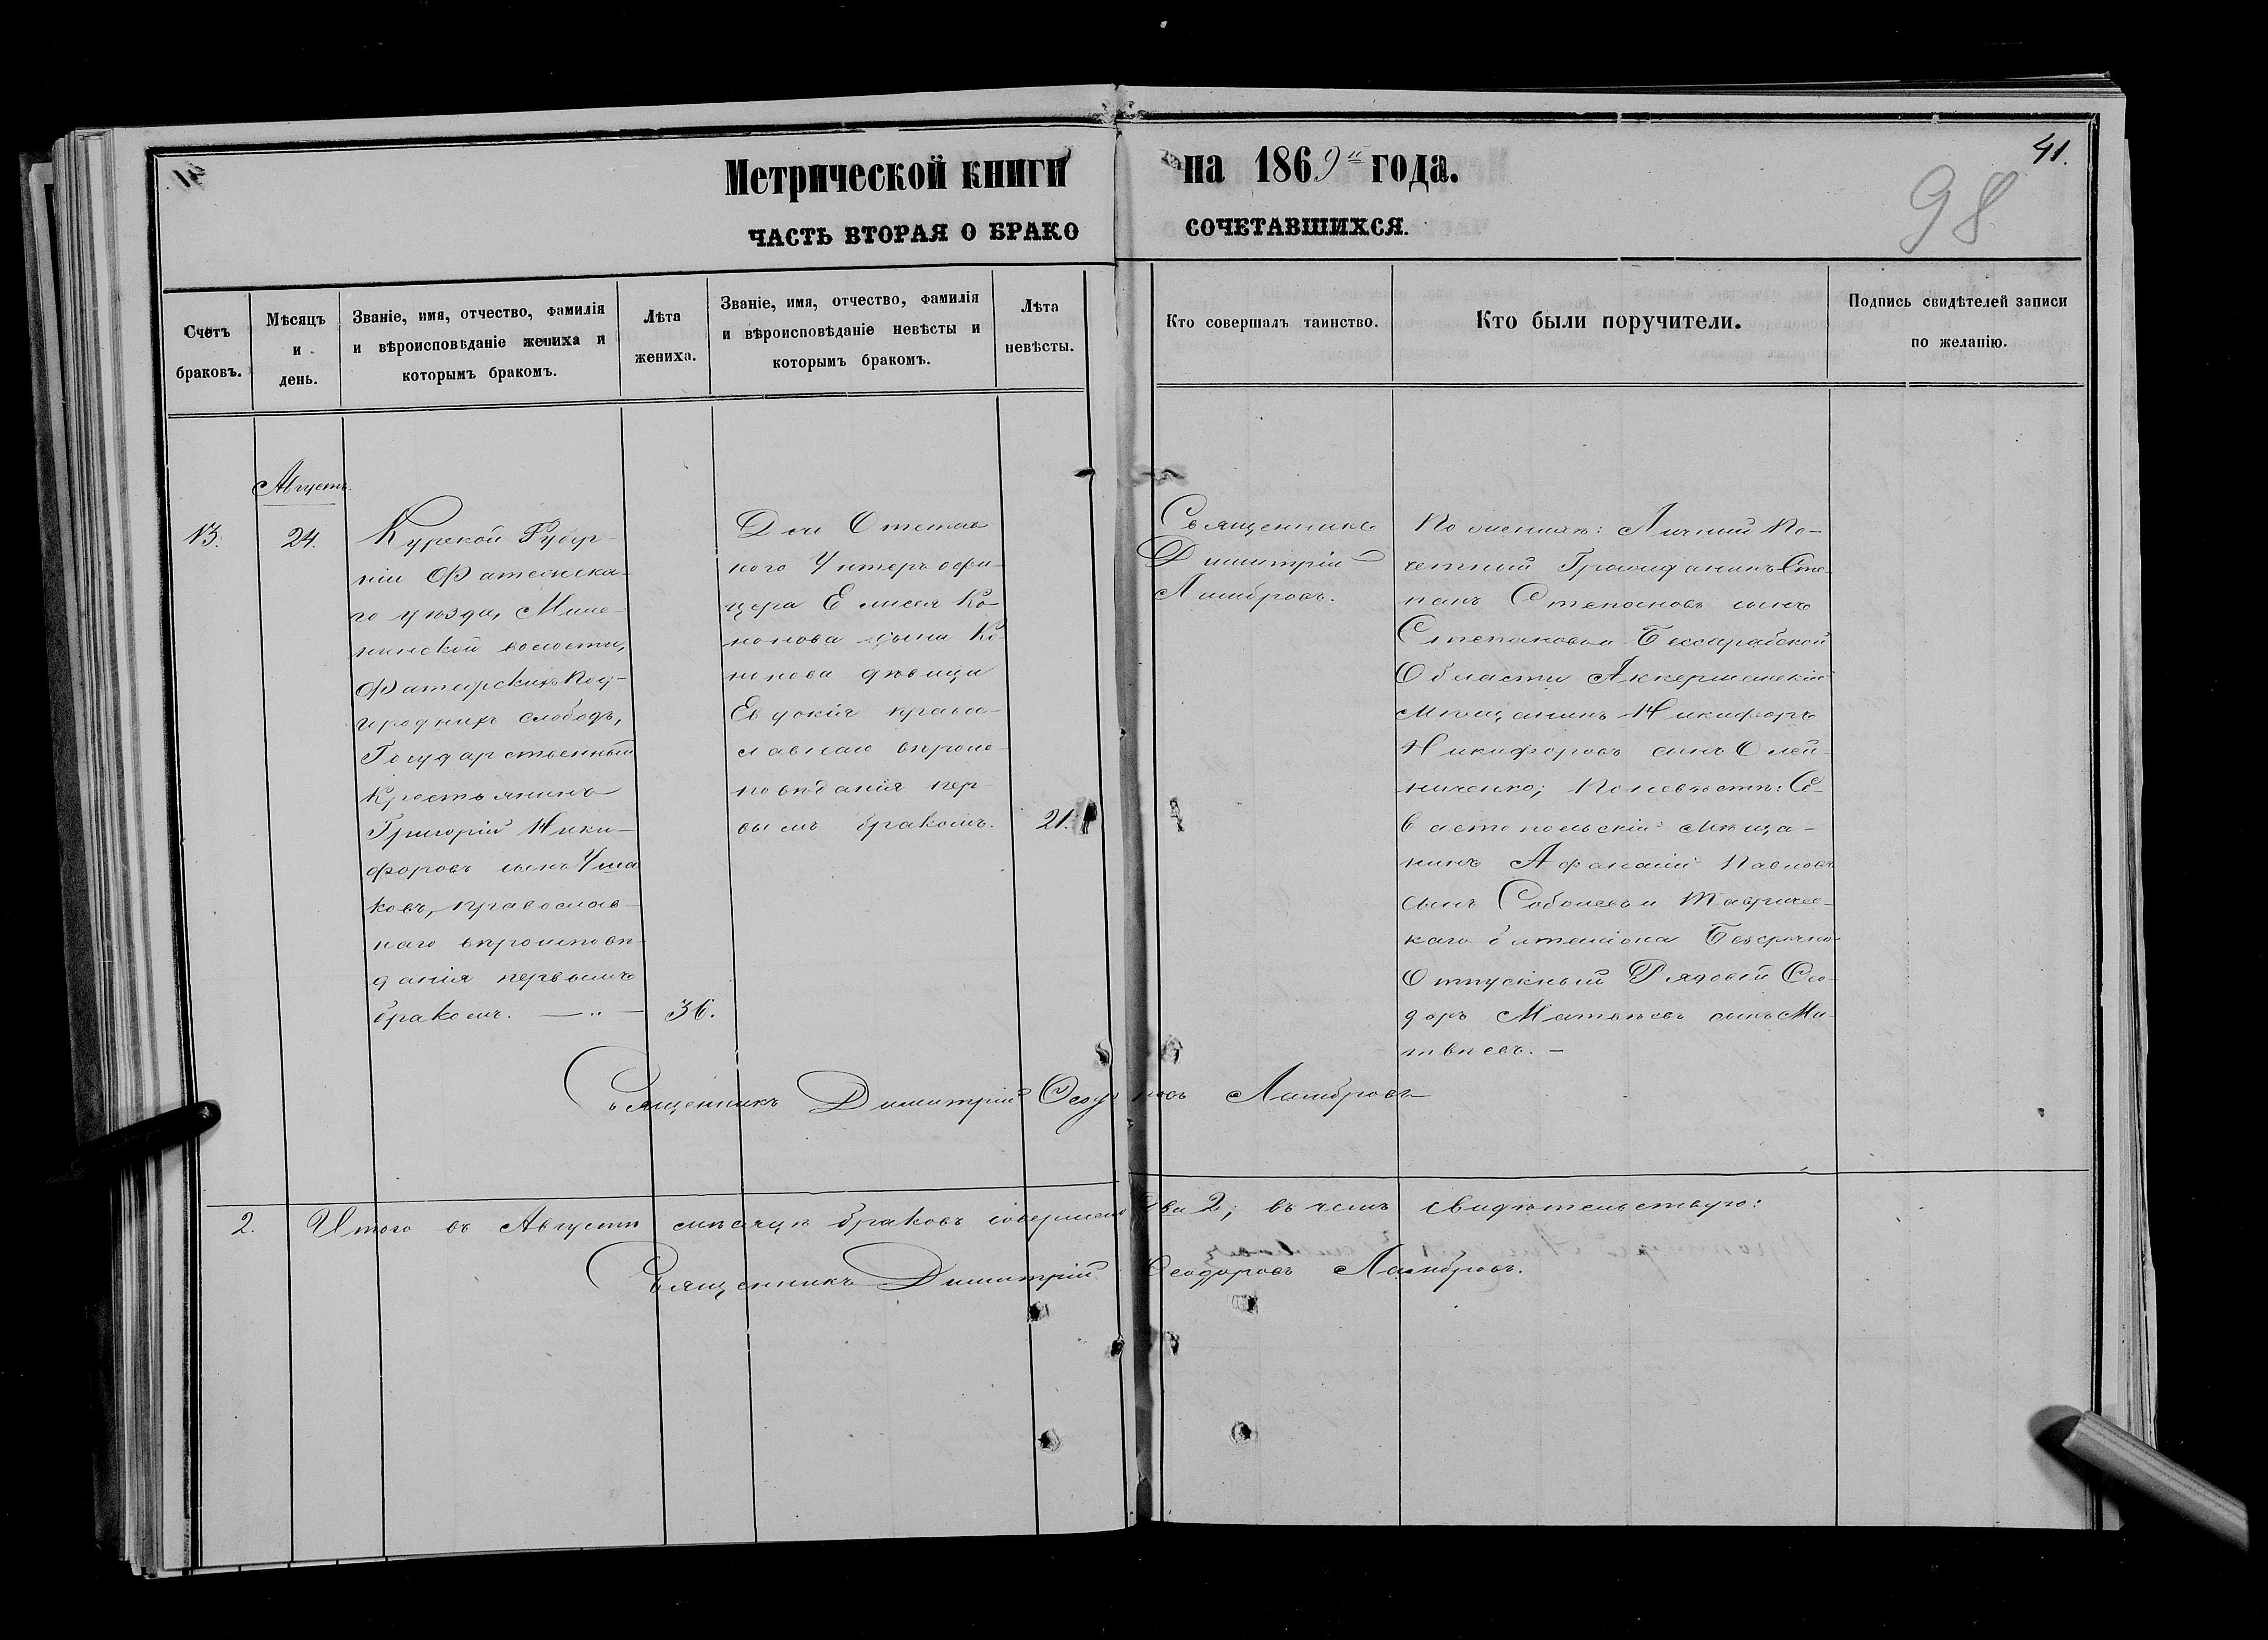 Метрической книги на 1869й года.
41.
98
ЧАСТЬ ВТОРАЯ О БРАКОСОЧЕТАВШИХСЯ.
Счетъ браковъ.
Мѣсяцъ и день.
Званіе, имя, отчество, фамилія
и вѣроисповѣданіе жениха и
которымъ бракомъ.
Лѣта
жениха.
Званіе, имя, отчество, фамилія
и вѣроисповѣданіе невѣсты и
которымъ бракомъ.
Лѣта
невѣсты.
Кто совершалъ таинство.
Кто были поручители.
Подпись свидѣтелей записи
по желанію.
Августъ.
13.
24.
Курской Губер-
ніи Фатежска-
го уѣзда,
нинской волости,
Подъ-
городнихъ слободъ,
Государственный
Крестьянинъ
Григорій Ники-
форовъ сынъ Уша
ковъ, православ-
наго вѣроисповѣ-
данія первымъ
бракомъ. — „ —
36.
Дочь Отстав
ного Унтеръ офи-
цера Елисея Ко-
нонова сына Ко
нонова дѣвица
Евдокія право-
славнаго вѣроис-
повѣданія пер-
вымъ бракомъ.
21.
Священникъ
Димитрій
Ламбровъ.
По женихѣ: Личный По-
четный Гражданинъ Сте-
панъ Степановъ сынъ
Степановъ и Бессарабской
Области Аккерманскій
мѣщанинъ Никифоръ
Никифоровъ сынъ Олей-
ниченко; По невѣстѣ: Се-
вастопольскій мѣща-
нинъ Афанасій Павловъ
сынъ Соболевъ и Тавричес-
каго баталіона Безсрочно-
Отпускный Рядовой Ѳео-
доръ Матвѣевъ сынъ Ма-
твѣевъ. —
Священникъ Димитрій Ѳеодоровъ Ламбровъ
2. Итого въ Августѣ мѣсяцѣ браковъ совершено два 2; въ чемъ свидѣтельствую:
Священникъ Димитрій Ѳеодоровъ Ламбровъ.